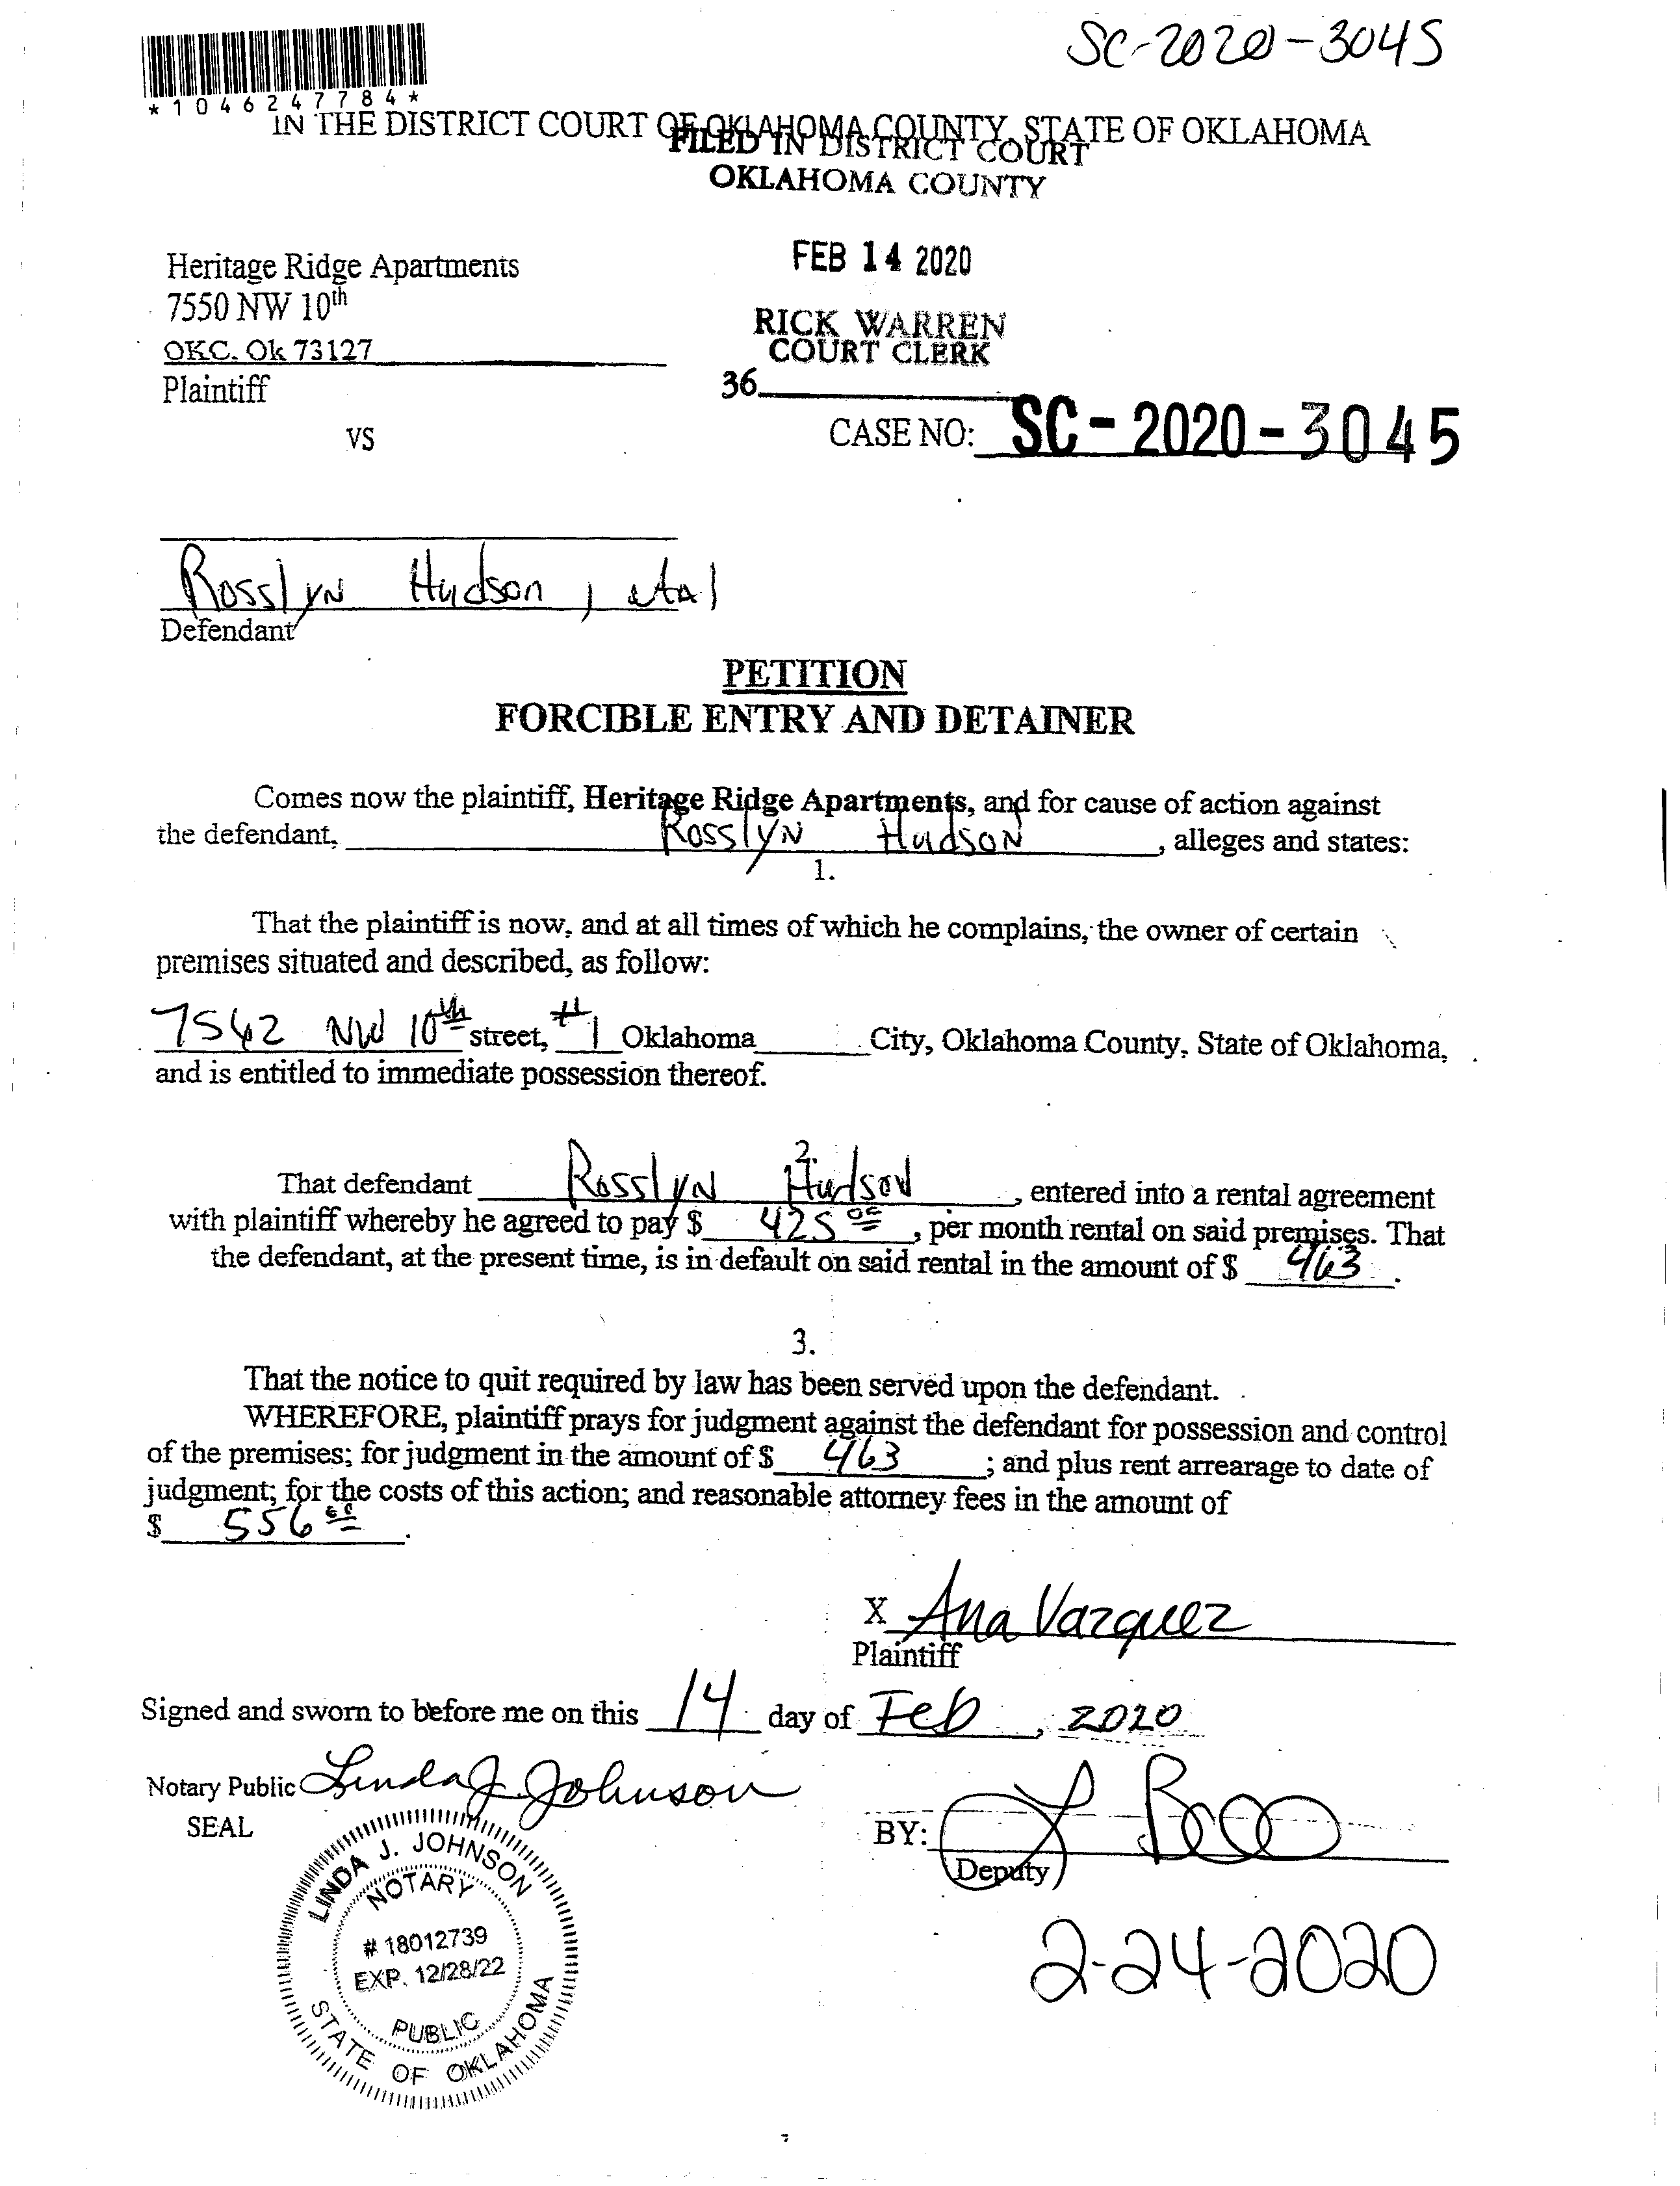 SC-2020-3045
*1046247784*
IN THE DISTRICT COURT OF OKLAHOMA COUNTY, STATE OF OKLAHOMA
FILED IN DISTRICT COURT
OKLAHOMA COUNTY
FEB 14 2020
Heritage Ridge Apartments
7550 NW 10th
RICK WARREN
COURT CLERK
OKC. Ok 73127
Plaintiff
36
VS
CASE NO: SC-2020-3045
Rosslyn Hudson, etal
Defendant
PETITION
FORCIBLE ENTRY AND DETAINER
Comes now the plaintiff, Heritage Ridge Apartments, and for cause of action against
the defendant, Rosslyn Hudson, alleges and states:
1.
That the plaintiff is now, and at all times of which he complains, the owner of certain
premises situated and described, as follow:
7542 NW 10th street, #1 Oklahoma City, Oklahoma County, State of Oklahoma,
and is entitled to immediate possession thereof.
2.
That defendant Rosslyn Hudson, entered into a rental agreement
with plaintiff whereby he agreed to pay $ 425 00, per month rental on said premises. That
the defendant, at the present time, is in default on said rental in the amount of $ 463.
3.
That the notice to quit required by law has been served upon the defendant.
WHEREFORE, plaintiff prays for judgment against the defendant for possession and control
of the premises; for judgment in the amount of $ 463; and plus rent arrearage to date of
judgment; for the costs of this action; and reasonable attorney fees in the amount of
$ 556 00.
X Ana Vazquez
Plaintiff
Signed and sworn to before me on this 14 day of Feb, 2020
Notary Public Linda J Johnson
SEAL
BY:
Deputy
LINDA J. JOHNSON
NOTARY
# 18012739
EXP. 12/28/22
PUBLIC
STATE OF OKLAHOMA
2-24-2020